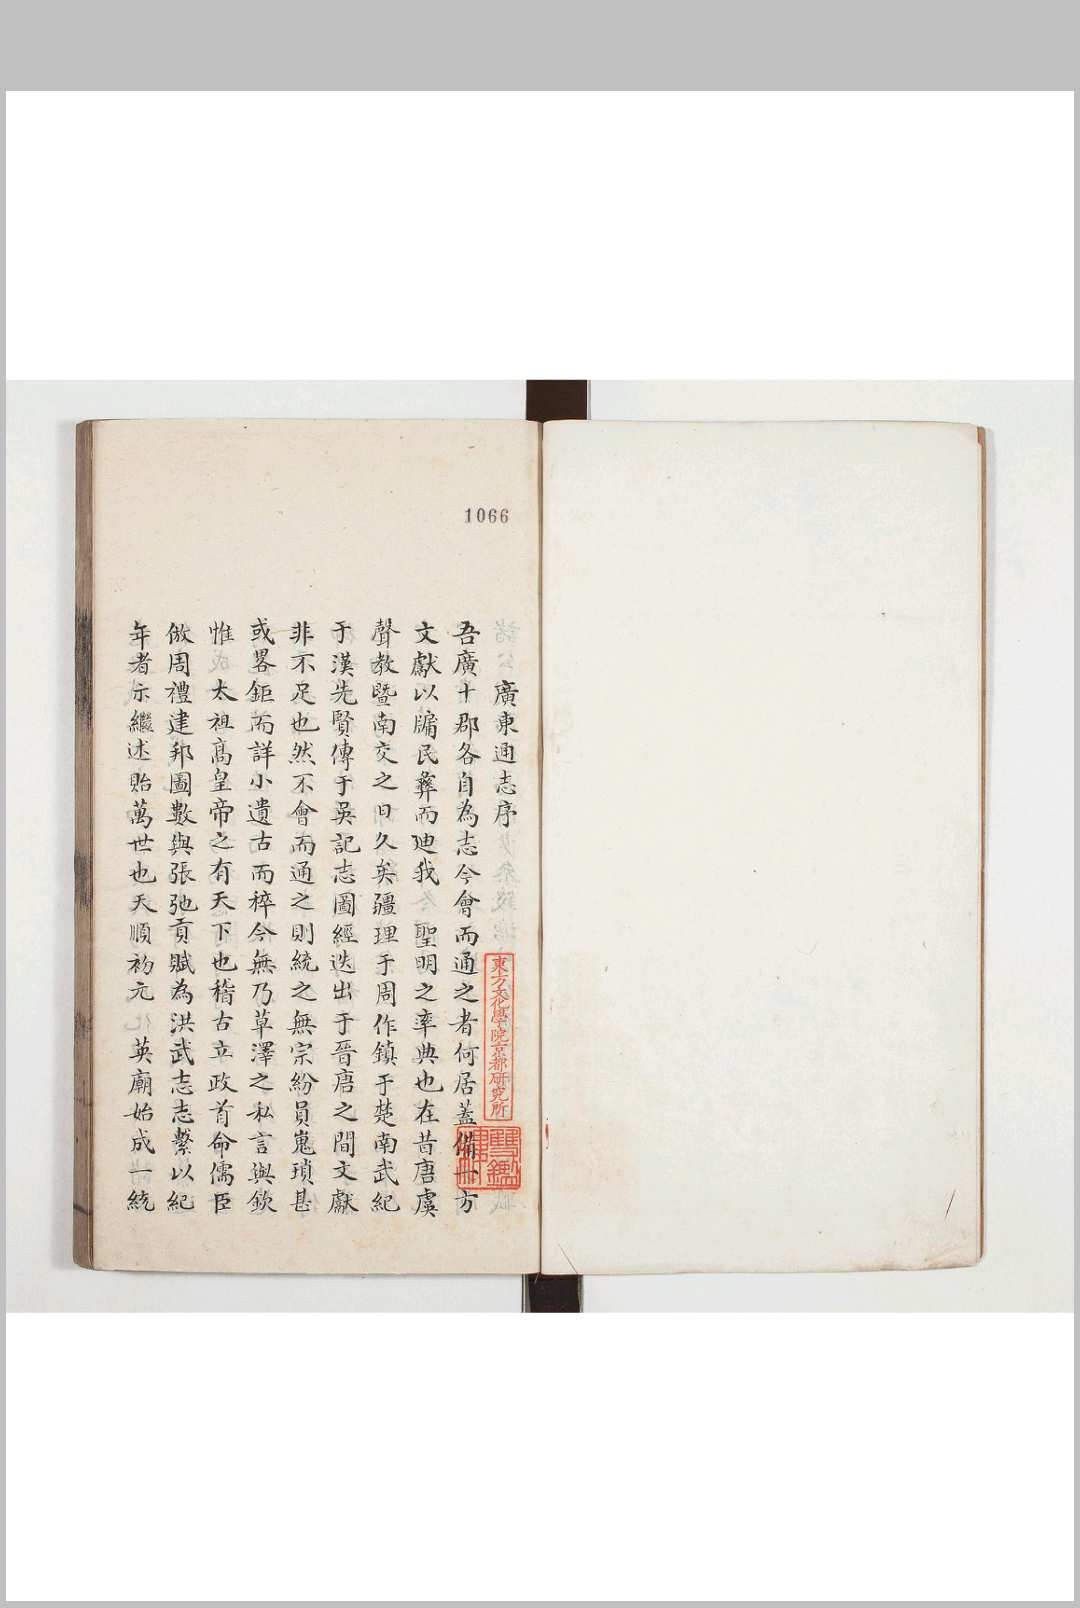 1066
廣東通志序
吾廣十郡各自為志今會而通之者何居蓋備一方
文獻以牖民彝而迪我聖明之率典也在昔唐虞
聲教暨南交之日久矣疆理于周作鎮于楚南武紀
于漢先賢傳于吳記志圖經迭出于晉唐之間文獻
非不足也然不會而通之則統之無宗紛員嵬瑣甚
或畧鉅而詳小遺古而稡今無乃草澤之私言與欽
惟太祖高皇帝之有天下也稽古立政首命儒臣
倣周禮建邦圖數與張弛貢賦為洪武志志繫以紀
年者示繼述貽萬世也天順初元英廟始成一統
東方文化學院京都研究所
雙鑑